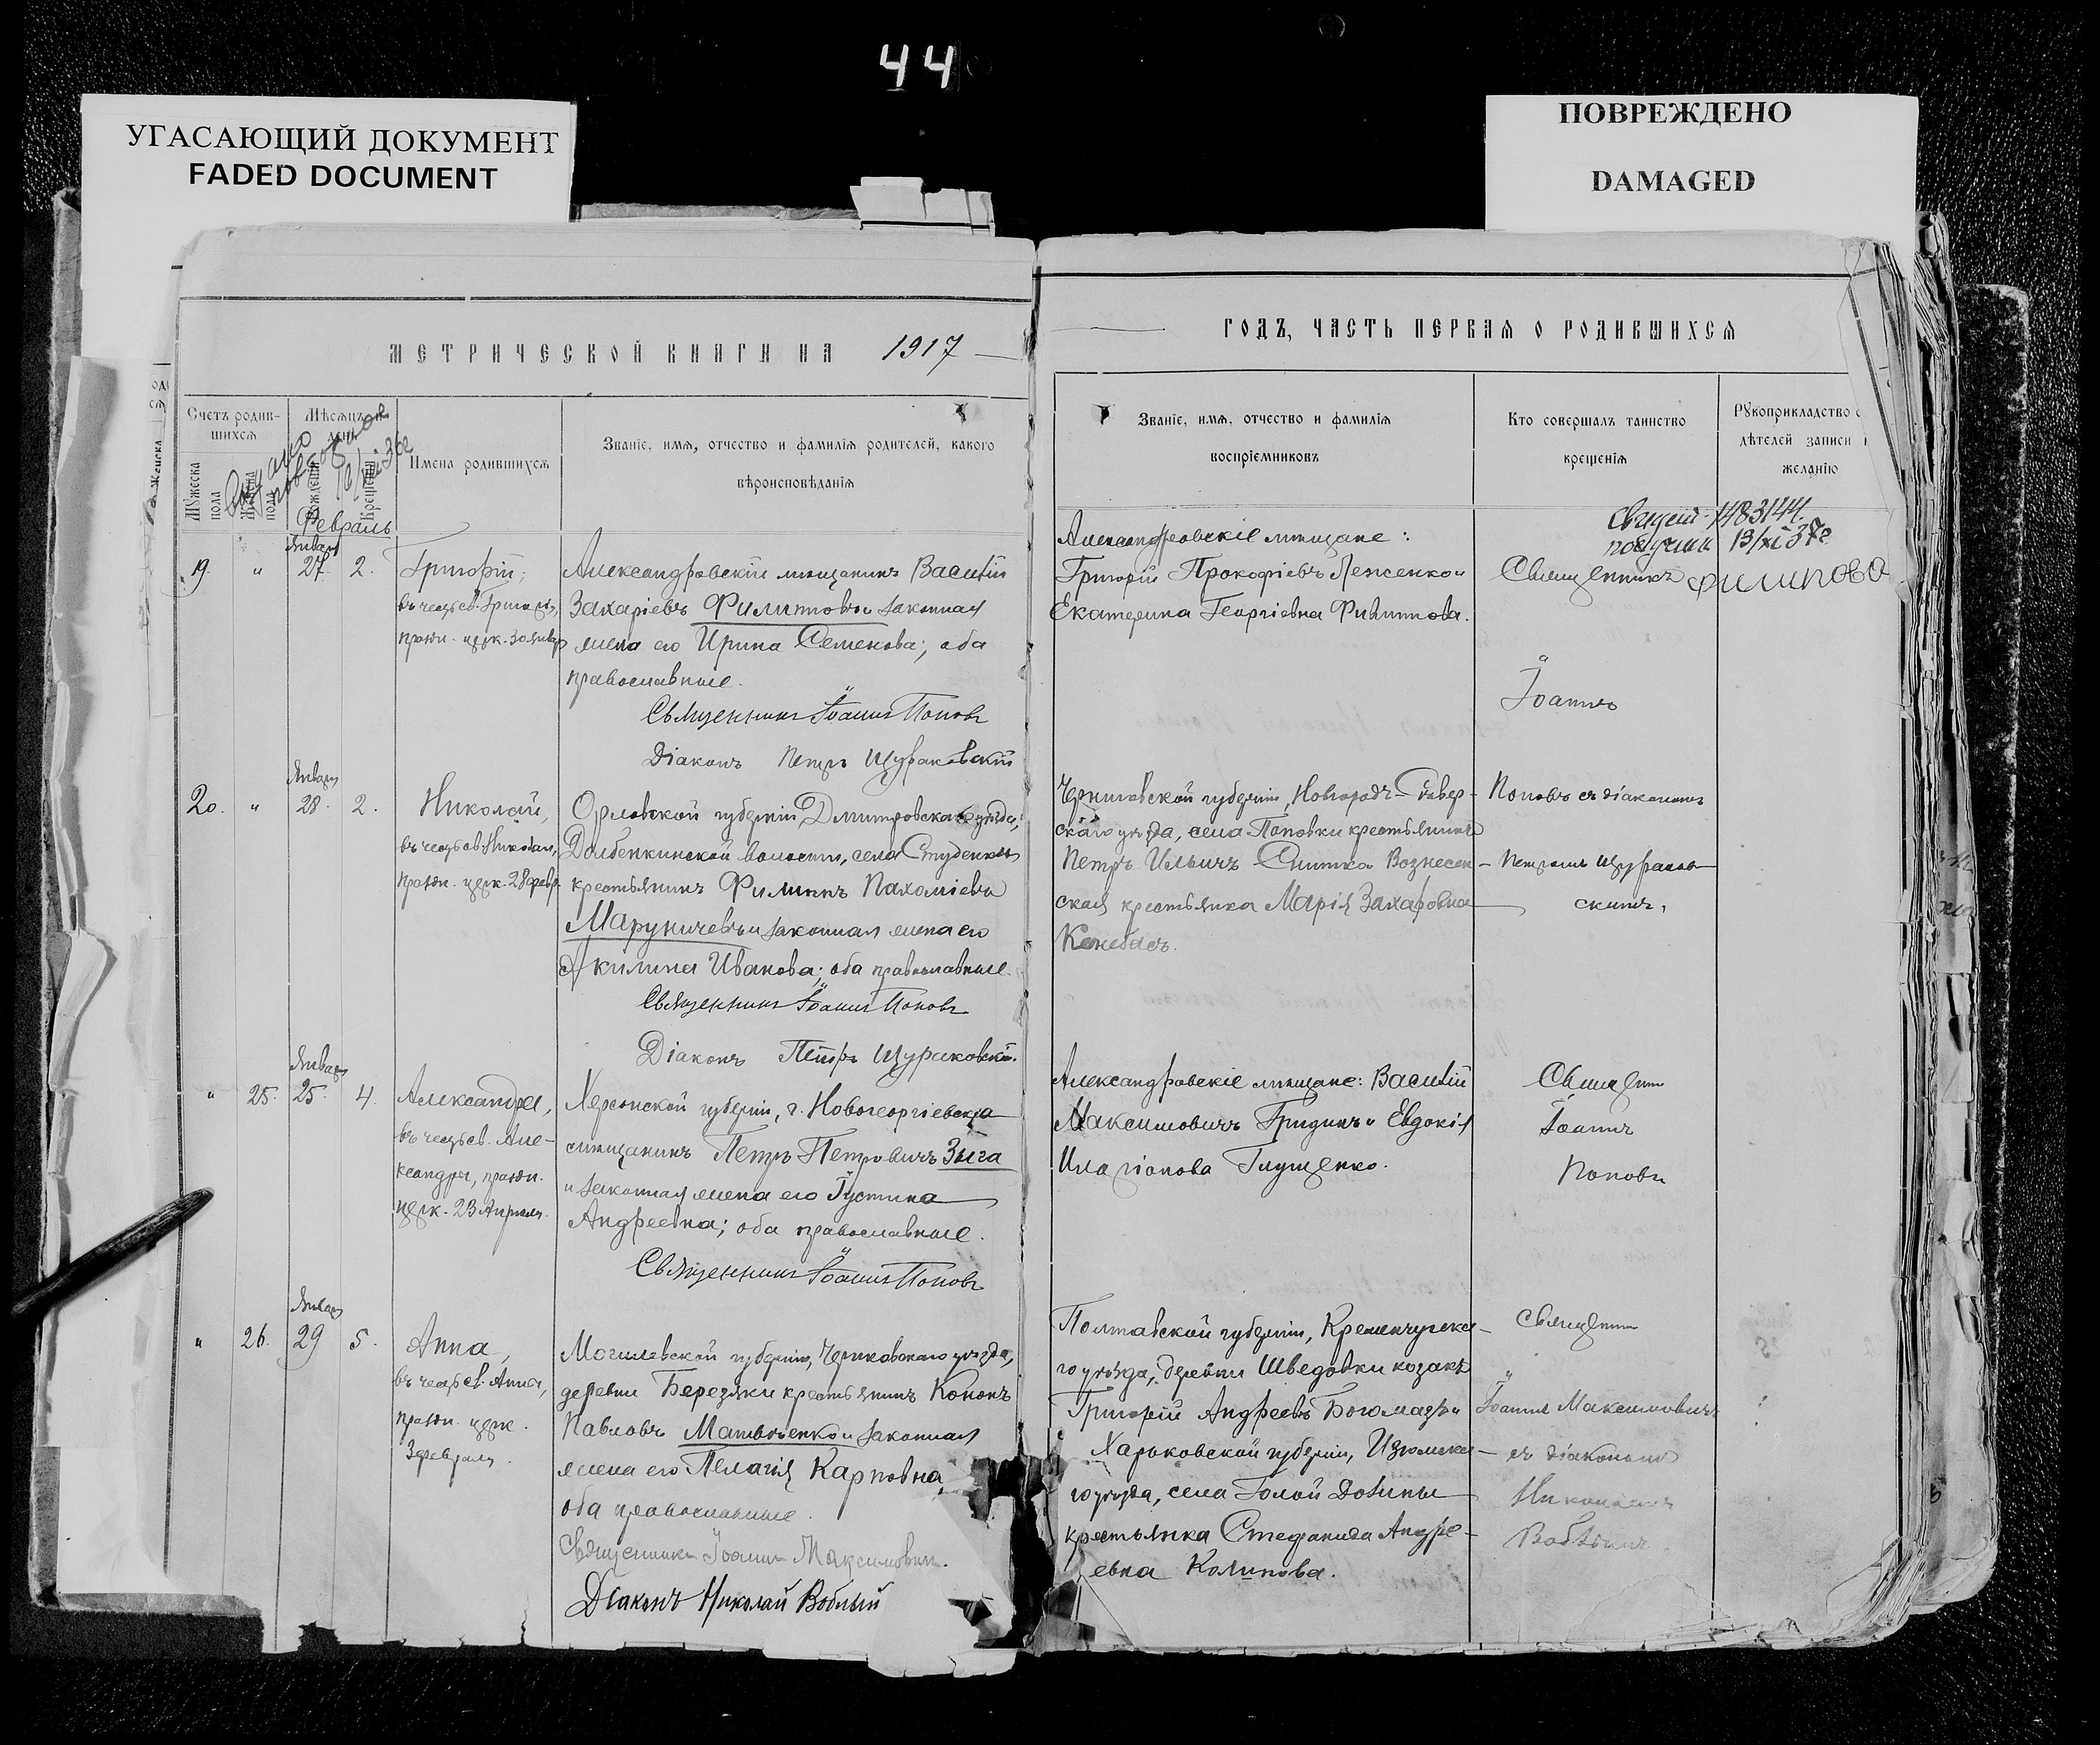 44
УГАСАЮЩИЙ ДОКУМЕНТ
FADED DOCUMENT
ПОВРЕЖДЕНО
DAMAGED
МЕТРИЧЕСКОЙ КНИГИ НА 1917
Счетъ родив-
шихся
Мѣсяцъ
день
Мужеска
пола
Женска
пола
Рожденія
Крещенія
Имена родившихся
Званіе, имя, отчество и фамилія родителей, какого
вѣроисповѣданія
Февраль
Января
19. " 27. 2.
Григорій,
въ честь св. Григорія,
празн. церк. 30 янвр
Александровскій мѣщанинъ Василій
Захаріевъ Филипповъ и законная
жена его Ирина Семенова; оба
православные.
Священникъ Іоаннъ Поповъ
Діаконъ Петръ Щураковскій
Января
20. " 28. 2.
Николай,
въ честь св. Николая,
празн. церк. 28 февр.
Орловской губерніи, Дмитровскаго уѣзда,
Долбенкинской волости, села Студенки
крестьянинъ Филиппъ Пахоміевъ
Маруничевъ и законная жена его
Акилина Иванова; оба православные.
Священникъ Іоаннъ Поповъ
Діаконъ Петръ Щураковскій.
Января
" 25. 25. 4.
Александра,
въ честь св. Але-
ксандры, празн.
церк. 23 Апреля.
Херсонской губерніи, г. Новогеоргіевска
мѣщанинъ Петръ Петровичъ Зыга
и законная жена его Іустина
Андреевна; оба православные.
Священникъ Іоаннъ Поповъ
Января
" 26. 29 5.
Анна,
въ честь св. Анны,
празн. церк.
3 февраля.
Могилевской губерніи, Чериковскаго уѣзда,
деревни Березяки крестьянинъ Кононъ
Павловъ Матвѣенко и законная
жена его Пелагія Карповна,
оба православные.
Священникъ Іоаннъ Максимовичъ.
Діаконъ Николай Воблый
ГОДЪ, ЧАСТЬ ПЕРВАЯ О РОДИВШИХСЯ
Званіе, имя, отчество и фамилія
воспріемниковъ
Кто совершалъ таинство
крещенія
Рукоприкладство
дѣтелей записи
желанію
Александровскіе мѣщане:
Григорій Прокофіевъ Леженко и
Екатерина Георгіевна Филиппова.
Свидет. 1483144.
получил 13/XI 37г
Филипова
Священникъ
Іоаннъ
Черниговской губерніи, Новгородъ-Сѣвер-
скаго уѣзда, села Поповки крестьянинъ
Петръ Ильичъ Снитко и Вознесен-
ская крестьянка Марія Захаровна
Кенебасъ.
Поповъ съ діакономъ
Петромъ Щураков-
скимъ,
Александровскіе мѣщане: Василій
Максимовичъ Гридинъ и Евдокія
Иларіонова Глущенко.
Священн
Іоаннъ
Поповъ
Полтавской губерніи, Кременчугска-
го уѣзда, деревни Шведовки козакъ
Григорій Андреевъ Богомазъ и
Харьковской губерніи, Изюмска-
го уѣзда, села Голой Долины
крестьянка Стефанида Андре-
евна Колинова.
Священн
Іоаннъ Максимовичъ
съ діакономъ
Николаемъ
Воблымъ.